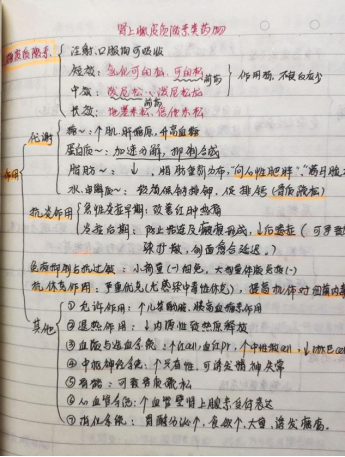 肾上腺皮质激素类药物
糖皮质激素
注射、口服均可吸收
短效：氢化可的松、可的松
前药
中效：泼尼松、泼尼松龙
前药
作用强，不良反应少
长效：地塞米松、倍他米松
作用
代谢
糖~：↑肌.肝糖原，升高血糖
蛋白质~：加速分解，抑制合成
脂肪~：↓，脂肪重新分布，"向心性肥胖""满月脸
水.电解质~：较弱保钠排钾，促排钙(骨质疏松)
抗炎作用
急性炎症早期：改善红肿热痛
炎症后期：防止粘连及瘢痕形成，↓后遗症(可
球扩散，创面愈合延迟。)
免疫抑制与抗过敏：小剂量(-)细免，大剂量体液免疫(-)
抗休克作用：严重休克(尤感染中毒性休克)，提高机体对细菌内毒
其他
①允许作用：↑儿茶酚胺，胰高血糖素作用
②退热作用：↓内源性致热原释放
③血液与造血系统：↑红cell，血红pr，↑中性粒cell，↓淋巴cell
④中枢神经系统：↑兴奋性，可诱发精神失常
⑤骨骼：可致骨质疏松
⑥心血管系统：↑血管壁肾上腺素受体表达
⑦消化系统：胃酸分泌↑，食欲↑，大量，诱发溃疡。